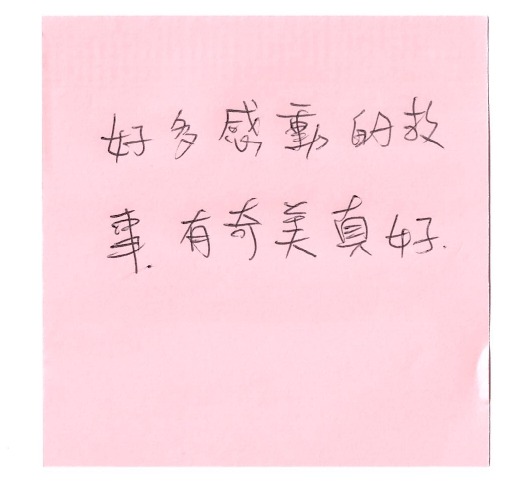 好多感動的故
事.有奇美真好.